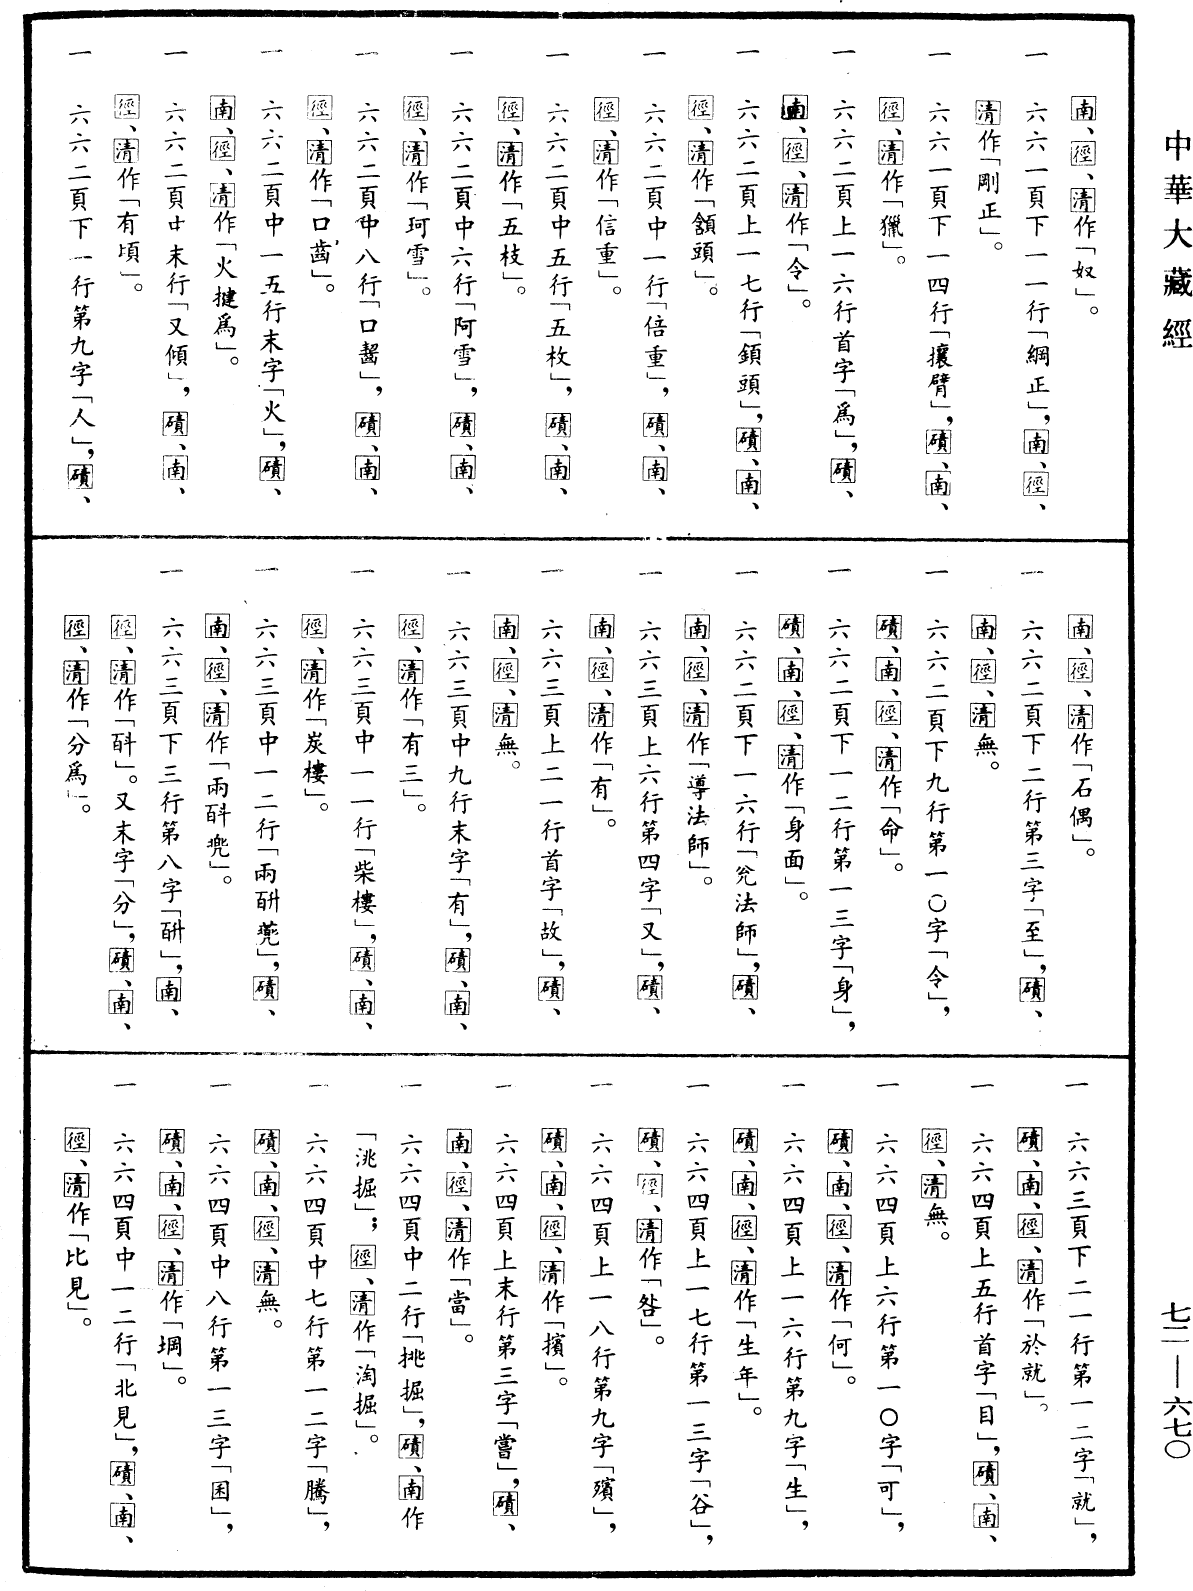 中華大藏經
南、徑、清作「奴」。
一 六六一頁下一一行「綱正」，南、徑、
清作「剛正」。
一 六六一頁下一四行「攘臂」，磧、南、
徑、清作「獵」。
一 六六二頁上一六行首字「爲」，磧、
南、徑、清作「令」。
一 六六二頁上一七行「鎖頭」，磧、南、
徑、清作「頷頭」。
一 六六二頁中一行「倍重」，磧、南、
徑、清作「信重」。
一 六六二頁中五行「五枚」，磧、南、
徑、清作「五枝」。
一 六六二頁中六行「阿雪」，磧、南、
徑、清作「珂雪」。
一 六六二頁中八行「口齧」，磧、南、
徑、清作「口齒」。
一 六六二頁中一五行末字「火」，磧、
南、徑、清作「火揵爲」。
一 六六二頁中末行「又傾」，磧、南、
徑、清作「有頃」。
一 六六二頁下一行第九字「人」，磧、
南、徑、清作「石偶」。
一 六六二頁下二行第三字「至」，磧、
南、徑、清無。
一 六六二頁下九行第一〇字「令」，
磧、南、徑、清作「命」。
一 六六二頁下一二行第一三字「身」，
磧、南、徑、清作「身面」。
一 六六二頁下一六行「兊法師」，磧、
南、徑、清作「導法師」。
一 六六三頁上六行第四字「又」，磧、
南、徑、清作「有」。
一 六六三頁上二一行首字「故」，磧、
南、徑、清無。
一 六六三頁中九行末字「有」，磧、南、
徑、清作「有三」。
一 六六三頁中一一行「柴樓」，磧、南、
徑、清作「炭樓」。
一 六六三頁中一二行「兩㪷㲋」，磧、
南、徑、清作「兩㪷兜」。
一 六六三頁下三行第八字「㪷」，南、
徑、清作「㪷」。又末字「分」，磧、南、
徑、清作「分爲」。
一 六六三頁下二一行第一二字「就」，
磧、南、徑、清作「於就」。
一 六六四頁上五行首字「目」，磧、南、
徑、清無。
一 六六四頁上六行第一〇字「可」，
磧、南、徑、清作「何」。
一 六六四頁上一六行第九字「生」，
磧、南、徑、清作「生年」。
一 六六四頁上一七行第一三字「谷」，
磧、徑、清作「咎」。
一 六六四頁上一八行第九字「殯」，
磧、南、徑、清作「擯」。
一 六六四頁上末行第三字「嘗」，磧、
南、徑、清作「當」。
一 六六四頁中二行「挑掘」，磧、南作
「洮掘」；徑、清作「淘掘」。
一 六六四頁中七行第一二字「騰」，
磧、南、徑、清無。
一 六六四頁中八行第一三字「困」，
磧、南、徑、清作「堈」。
一 六六四頁中一二行「北見」，磧、南、
徑、清作「比見」。
七二—六七〇